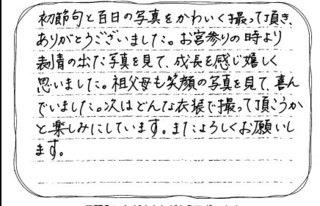 初節句と百日の写真をかわいく撮って頂き、
ありがとうございました。お宮参りの時より
表情の出た写真を見て、成長を感じ嬉しく
思いました。祖父母も笑顔の写真を見て、喜ん
でいました。次はどんな衣装で撮って頂こうか
と楽しみにしています。またよろしくお願いし
ます。